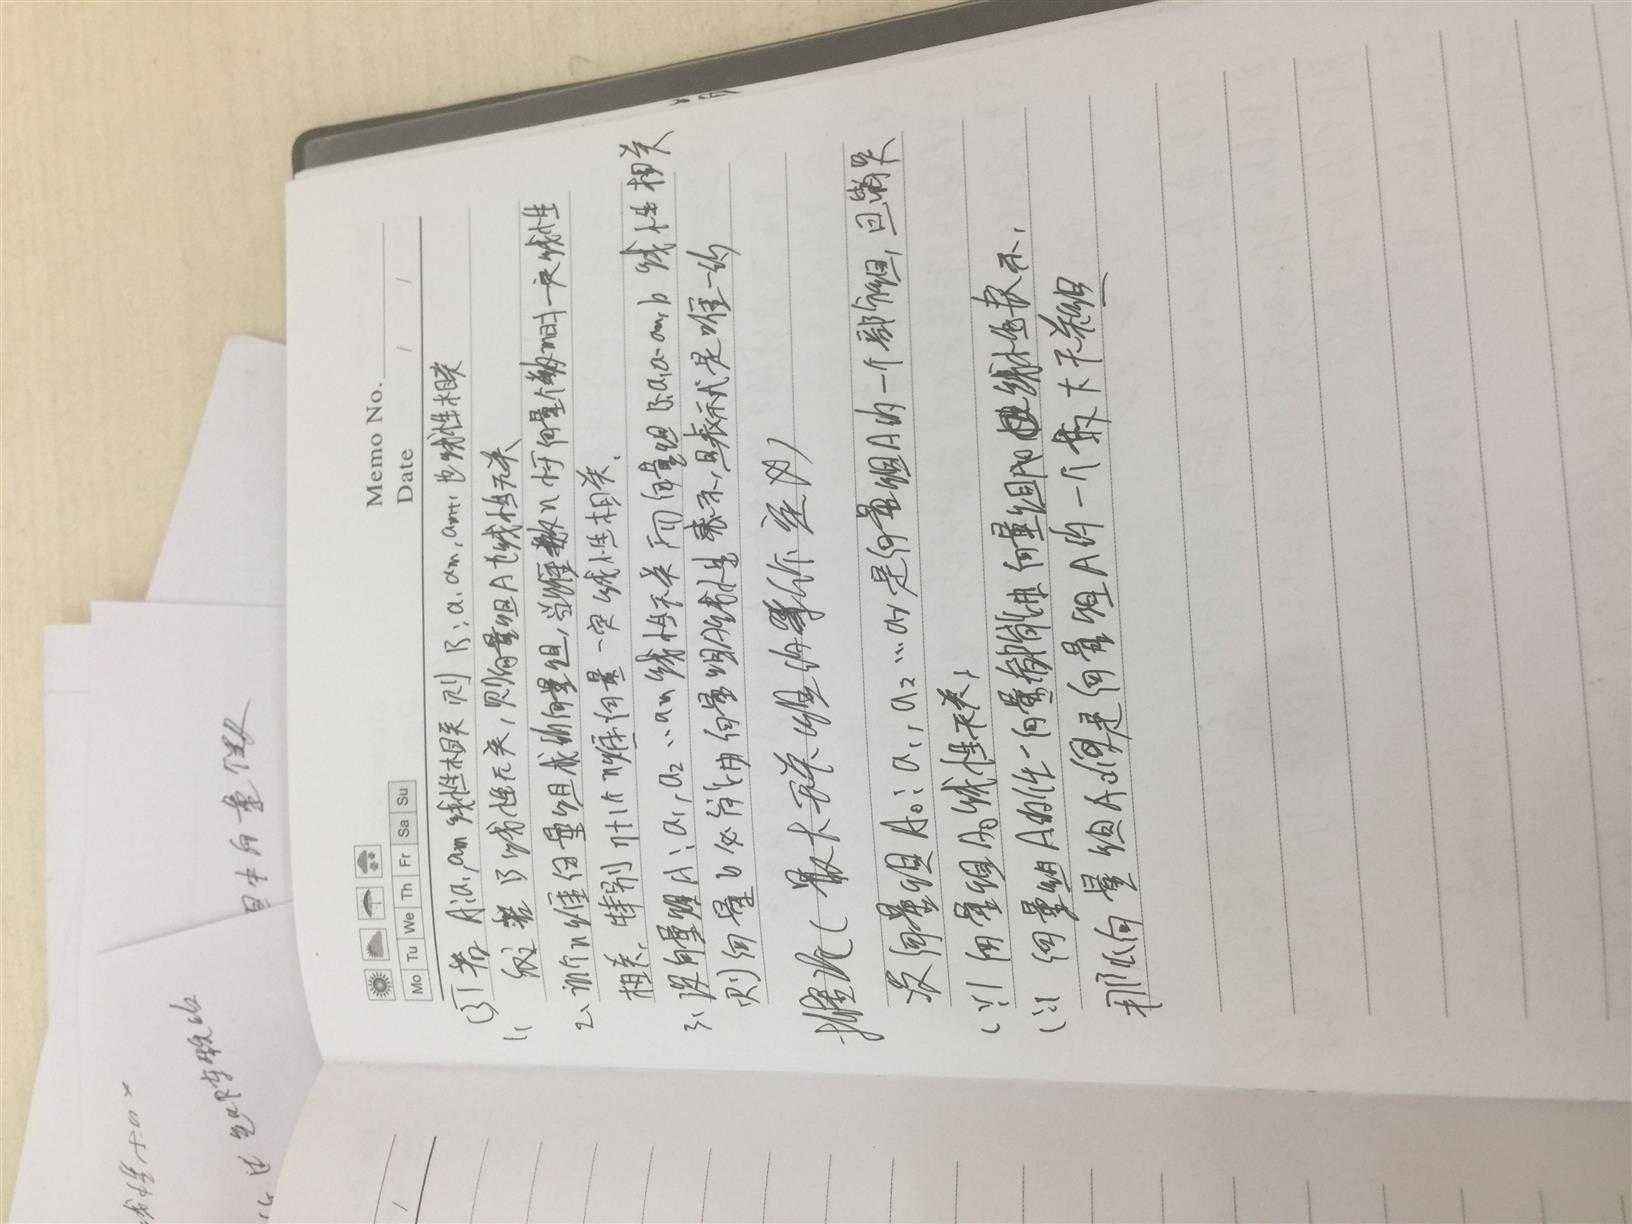 Memo No.
Mo Tu We Th Fr Sa Su
Date / /
(3) 若 A: a₁, aₘ 线性相关 则 B: a₁ aₘ, aₘ₊₁ 也线性相关
1、 反之 若 B 线性无关, 则向量组A也线性无关
2、m个n维向量组成的向量组,当维数n小于向量个数m时一定线性
相关,特别 n+1个n维向量一定线性相关.
3、设向量组A: a₁, a₂ … aₘ 线性无关 而向量组 B: a₁ … aₘ, b 线性相关
则向量b必能由向量组A线性表示,且表示式是唯一的
推论(最大无关组的等价定义)
设向量组 A₀: a₁, a₂ … aᵣ 是向量组A的一个部分组,且满足
(i) 向量组A₀线性无关,
(ii) 向量组A的任一向量都能由向量组A₀线性表示.
那么向量组A₀便是向量组A的一个最大无关组
向量个数